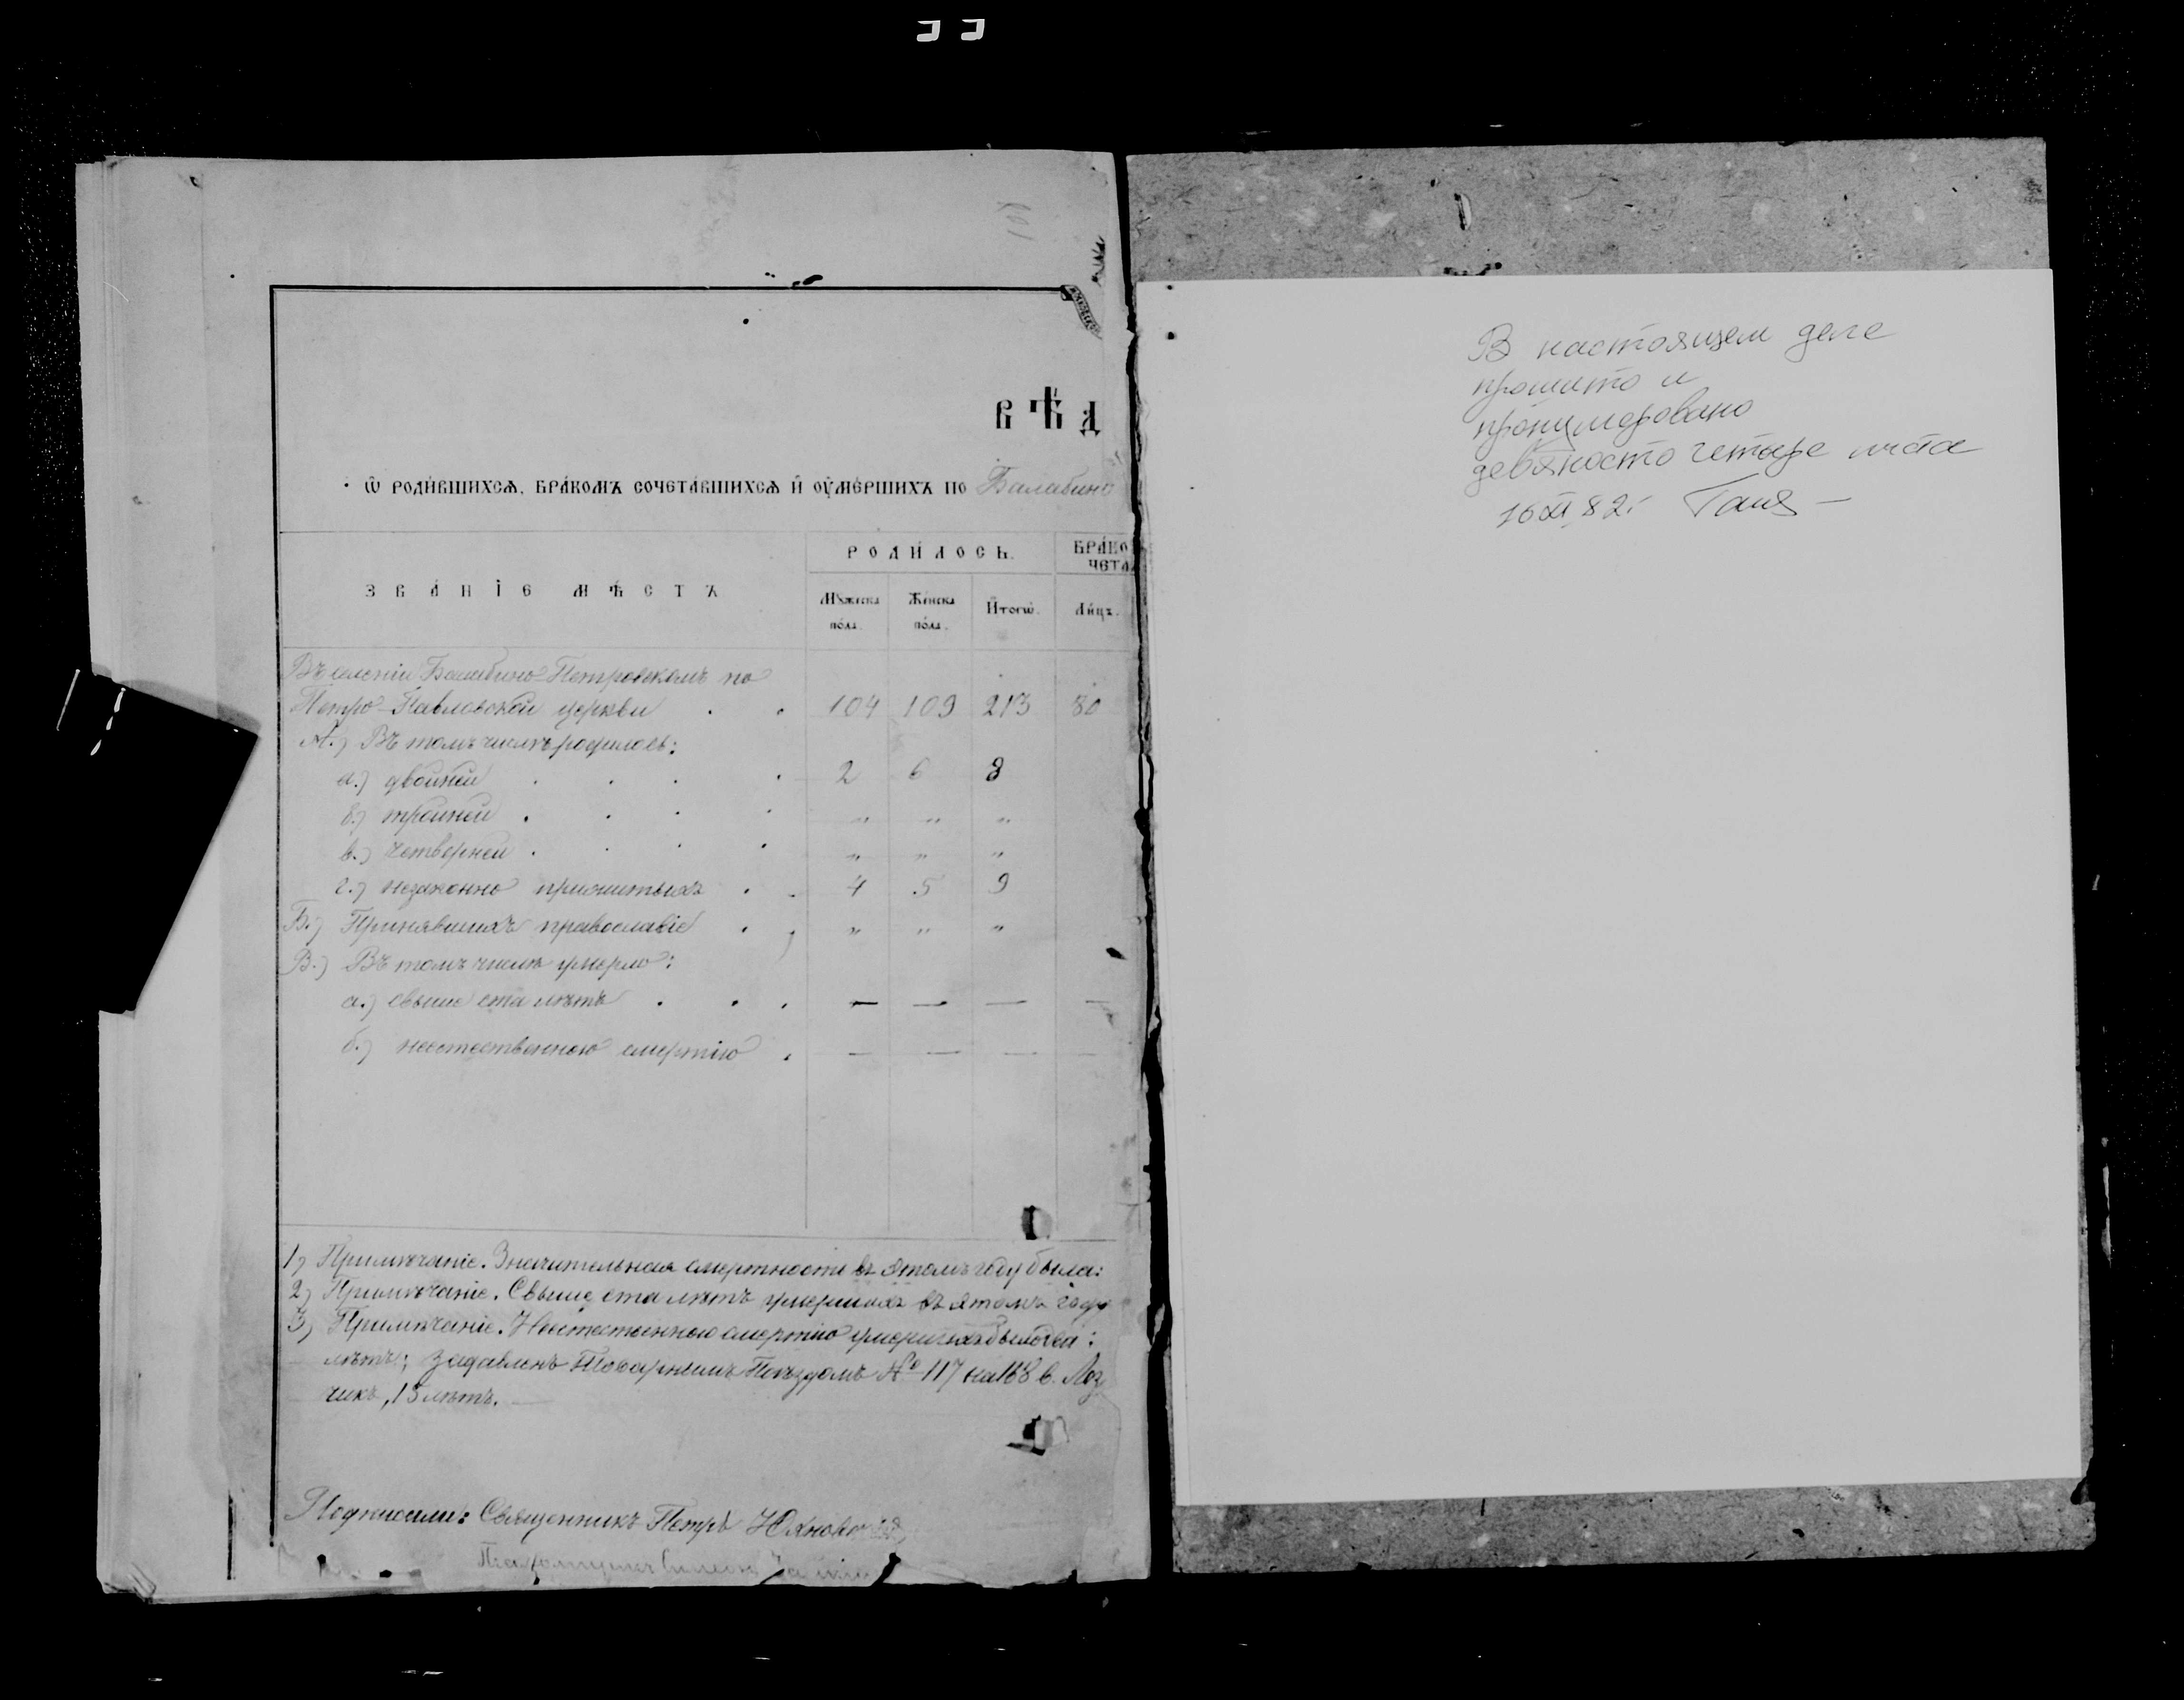 108
ВѢД
Ѿ РОДИ́ВШИХСѦ, БРА́КОМЪ СОЧЕТА́ВШИХСѦ И҆ ОУ҆МЕ́РШИХЪ ПО Балабино
ЗВА́НІЕ МѢ́СТЪ
РОДИ́ЛОСЬ.
БРА́КО
ЧЕТА
Мꙋ́жеска по́ла.
Же́нска по́ла.
И҆тогѡ̀.
Ли́цъ.
Въ селеніи Балабино-Петровскомъ по
Петро-Павловской церкви . . 104 109 213 80
А.) Въ томъ числѣ родилось:
а.) двойней . . . . 2 6 8
б.) тройней . . . . „ „ „
в.) четверней . . . . „ „ „
г.) незаконно прижитыхъ . . 4 5 9
Б.) Принявшихъ православіе . . „ „ „
В.) Въ томъ числѣ умерло:
а.) свыше ста лѣтъ . . . — — — —
б.) неестественною смертію . — — — —
1) Примѣчаніе. Значительная смертность въ этомъ году была:
2) Примѣчаніе. Свыше ста лѣтъ умершихъ въ этомъ году
3) Примѣчаніе. Неестественною смертію умершихъ было два:
лѣтъ; задавленъ Товарнымъ Поѣздомъ № 117 на 168 в. Лоз
чикъ, 15 лѣтъ.
Подписали: Священникъ Петръ
Псаломщикъ
В настоящем деле
прошито и
пронумеровано
девяносто четыре листа
16 XI 82г.